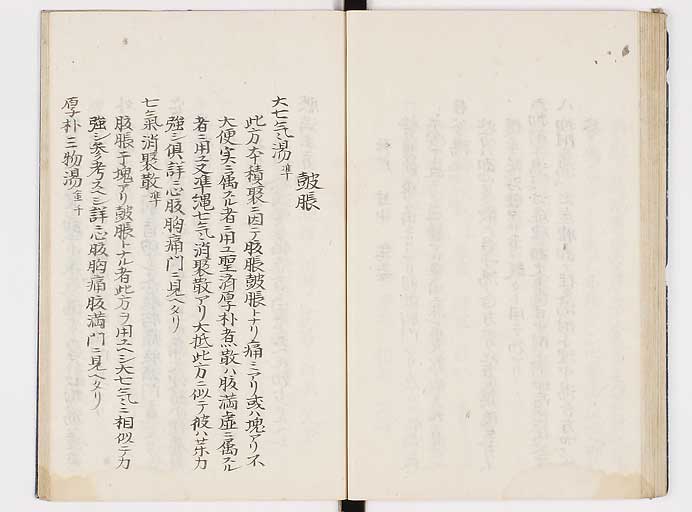 皷脹
大七気湯 準
此方本積聚ニ因テ腹脹皷脹トナリ痛ミアリ或ハ塊アリ不
大便実ニ属スル者ニ用ユ聖済厚朴煮散ハ腹満虚ニ属スル
者ニ用ユ又準縄七気消聚散アリ大抵此方ニ似テ彼ハ其力
強シ俱詳ニ心腹胸痛門ニ見ヘタリ
七気消聚散 準
腹脹テ塊アリ皷脹トナル者此方ヲ用ユヘシ大七気ニ相似テ力
強シ参考スヘシ詳ニ心腹胸痛腹満門ニ見ヘタリ
厚朴三物湯 金